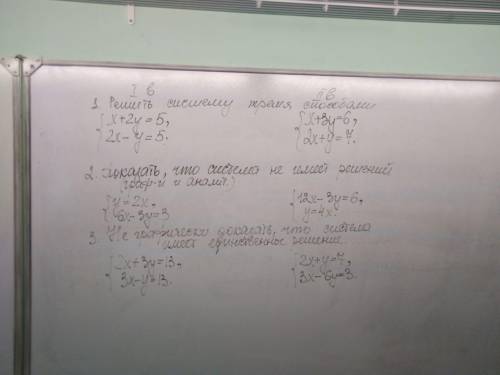 I в II в
1. Решить систему тремя способами
{x+2y=5, {x+3y=6,
{2x-y=5. {2x+y=7.
2. Доказать, что система не имеет решений
(граф-и и аналит.)
{y=2x, {12x-3y=6,
{6x-3y=3 {y=4x.
3. Не графически доказать, что система
имеет единственное решение.
{2x+3y=13, {2x+y=7,
{3x-y=13. {3x-6y=3.